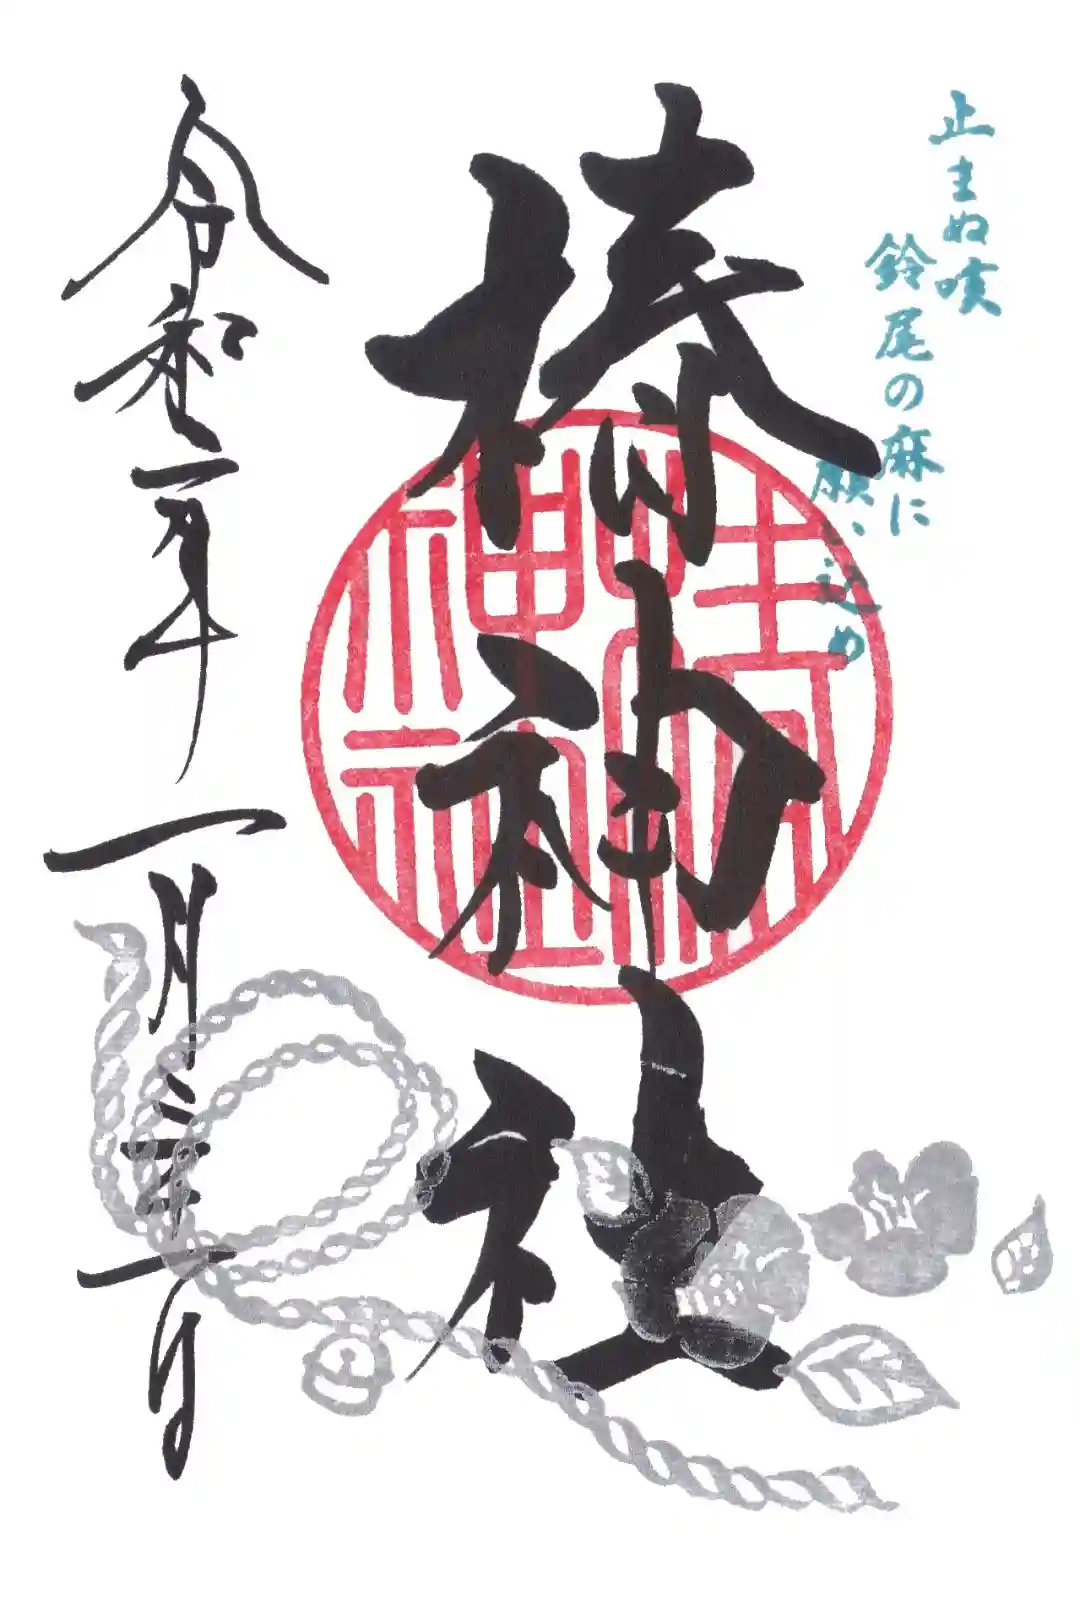 止まぬ咳
鈴尾の麻に
願い込め
椿神社
令和二年一月